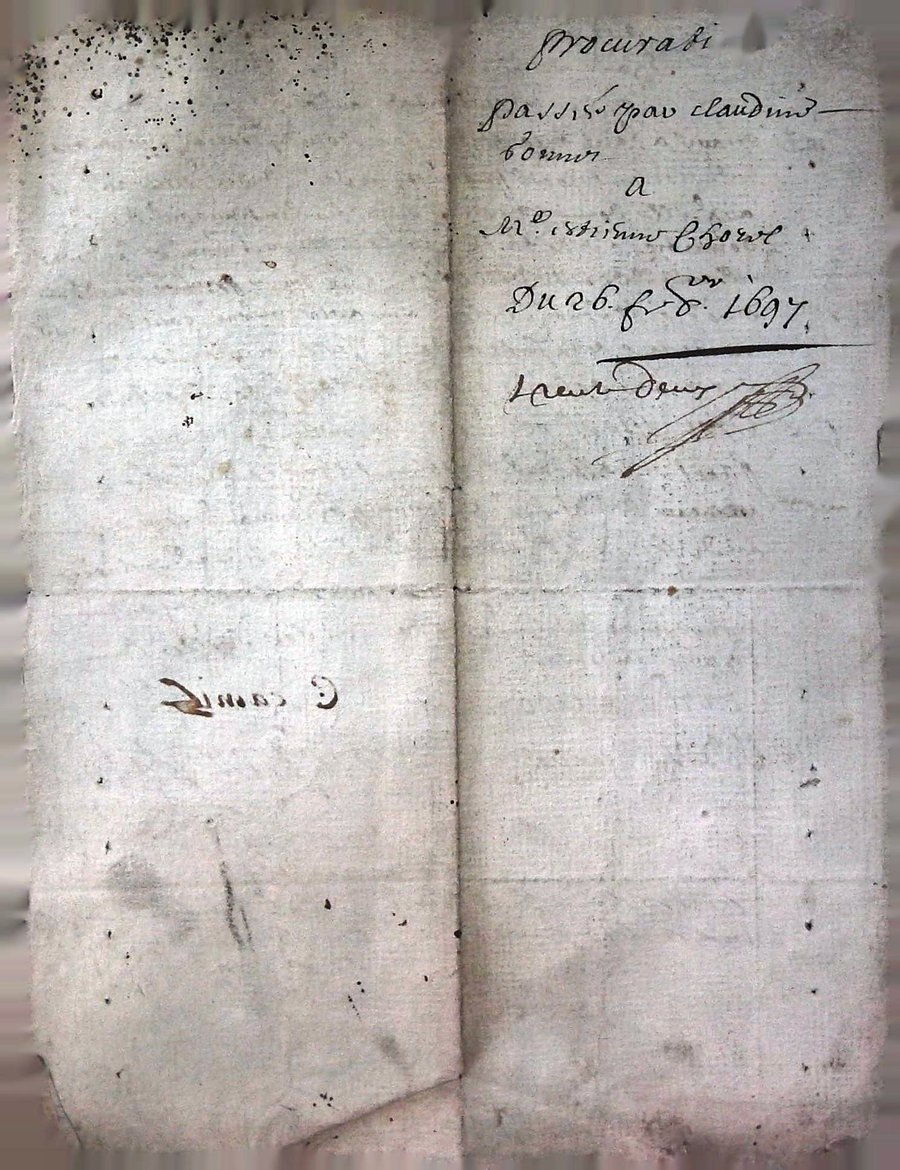 procurati
passée par claudine
bonnes
a
Me. estienne Chorel
Du 26. febvr. 1697
trente deux